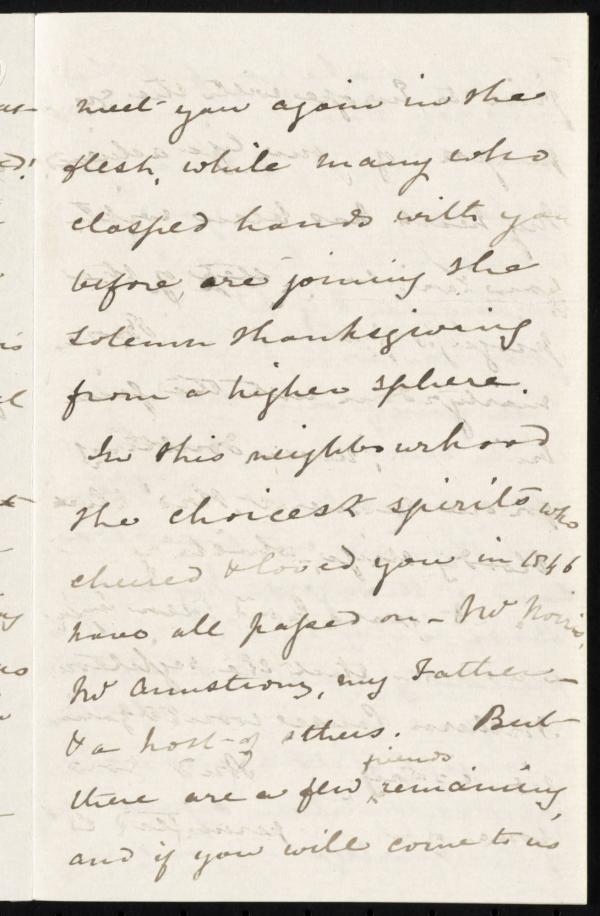 meet you again in the
flesh, while many who
clasped hands with you
before, are joining the
solemn thanksgiving
from a higher sphere.
In this neighbourhood
the choicest spirits who
cheered & loved you in 1846
have all passed on – Mr Norris,
Mr Armstrong, my Father –
& a host of others. But
friends
there are a few ^ remaining,
and if you will come to us